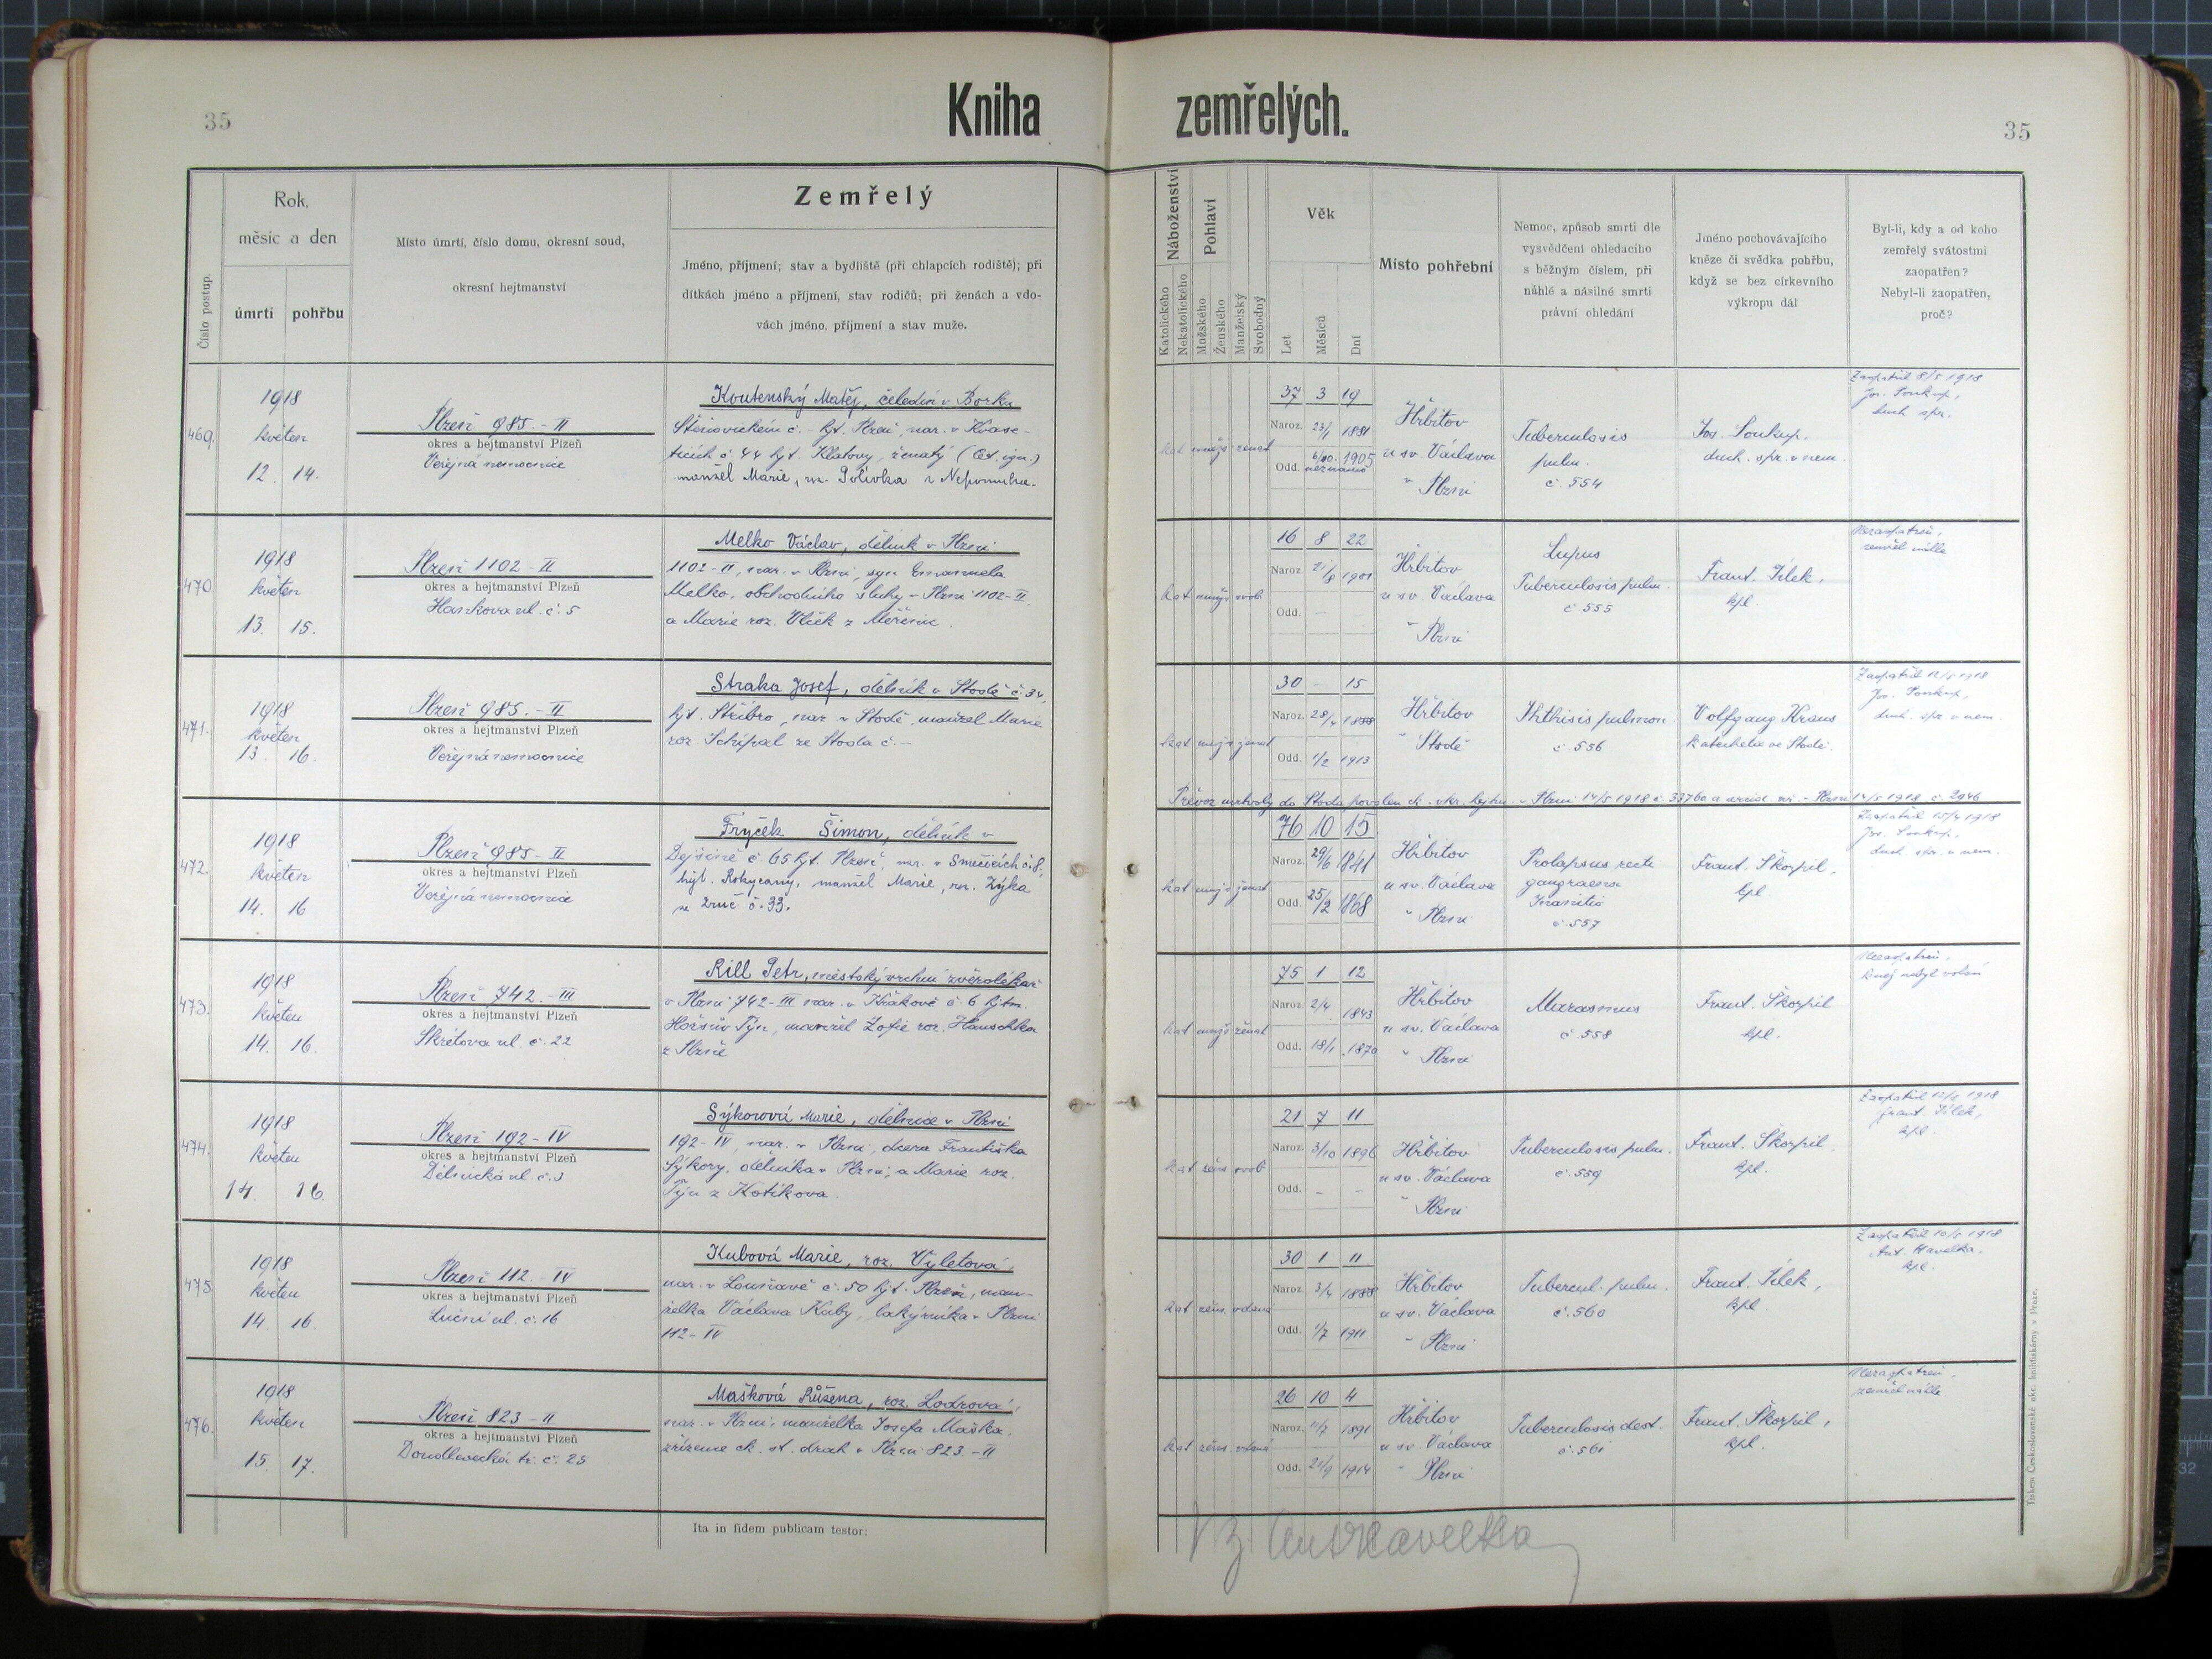 35
Kniha zemřelých.
35
Číslo postup.
Rok,
měsíc a den
úmrtí
pohřbu
Místo úmrtí, číslo domu, okresní soud,
okresní hejtmanství
Zemřelý
Jméno, příjmení; stav a bydliště (při chlapcích rodiště); při
dítkách jméno a příjmení, stav rodičů; při ženách a vdo-
vách jméno, příjmení a stav muže.
Náboženství
Katolického
Nekatolického
Pohlaví
Mužského
Ženského
Manželský
Svobodný
Věk
Let
Měsíců
Dní
Místo pohřební
Nemoc, způsob smrti dle
vysvědčení ohledacího
s běžným číslem, při
náhlé a násilné smrti
právní ohledání
Jméno pochovávajícího
kněze či svědka pohřbu,
když se bez církevního
výkropu dál
Byl-li, kdy a od koho
zemřelý svátostmi
zaopatřen?
Nebyl-li zaopatřen,
proč?
469.
1918
květen
12. 14.
Plzeň 985.-II
okres a hejtmanství Plzeň
Veřejná nemocnice
Koutenský Matěj, čeledín v Borku
Štěnovickém č. - hjt. Plzeň, nar. v Kvase-
ticích č. 44 hjt. Klatovy, ženatý
manžel Marie, roz. Polívka z Nepomuka.
kat mužs ženat
37 3 19
Naroz. 23/1 1881
Odd. 6/10. 1905
neznámo
Hřbitov
u sv. Václava
v Plzni
Tuberculosis
pulm.
č. 554
Jos. Soukup.
duch. spr. v nem.
Zaopatřil 8/5 1918
Jos. Soukup,
duch. spr.
470.
1918
květen
13. 15.
Plzeň 1102-II
okres a hejtmanství Plzeň
Hankova ul. č. 5
Melko Václav, dělník v Plzni
1102-II, nar. v Plzni, syn Emanuela
Melko, obchodního sluhy v Plzni 1102-II,
a Marie roz. Vlček z Měčína.
kat mužs svob
16 8 22
Naroz. 21/8 1901
Odd. –
Hřbitov
u sv. Václava
v Plzni
Lupus
Tuberculosis pulm.
č 555
Frant. Jílek,
kpl.
Nezaopatřen,
zemřel náhle
471.
1918
květen
13. 16.
Plzeň 985.-II
okres a hejtmanství Plzeň
Veřejná nemocnice
Straka Josef, dělník v Stodě č. 34,
hjt. Stříbro, nar. v Stodě, manžel Marie
roz. Schipal ze Stoda č. –
kat mužs ženat
30 – 15
Naroz. 28/4 1888
Odd. 1/2 1913
Hřbitov
v Stodě
Phthisis pulmon.
č. 556
Volfgang Kraus
katecheta ve Stodě.
Zaopatřil 12/5 1918
Jos. Soukup,
duch. spr. v nem.
Převoz mrtvoly do Stoda povolen ck. okr. hejtm. v Plzni 14/5 1918 č. 33760 a v Plzni 14/5 1918 č. 2946
472.
1918
květen
14. 16
Plzeň 985-II
okres a hejtmanství Plzeň
Veřejná nemocnice
Fryček Šimon, dělník v
Dejšině č. 65 hjt. Plzeň, nar. v Smečicích č. 8,
hejt. Rokycany, manžel Marie, roz. Zýka
ze Zruč č. 33.
kat mužs ženat
76 10 15
Naroz. 29/6 1841
Odd. 25/2 1868
Hřbitov
u sv. Václava
v Plzni
Prolapsus recti
gangraena
Inanitio
č. 557
Frant. Škorpil,
kpl
Zaopatřil 15/4 1918
Jos. Soukup,
duch. spr. v nem.
473.
1918
květen
14. 16.
Plzeň 742.-III
okres a hejtmanství Plzeň
Škrétova ul. č. 22
Rill Petr, městský vrchní zvěrolékař
v Plzni 742-III nar. v Křakově č. 6 hjtm.
Horšův Týn, manžel Žofie roz. Hauschka
z Plzně
kat mužs ženat
75 1 12
Naroz. 2/4 1843
Odd. 18/1 1870
Hřbitov
u sv. Václava
v Plzni
Marasmus
č. 558
Frant. Škorpil
kpl.
Nezaopatřen,
kněz nebyl volán
474.
1918
květen
14. 16.
Plzeň 192-IV
okres a hejtmanství Plzeň
Dělnická ul. č. 3
Sýkorová Marie, dělnice v Plzni
192-IV, nar. v Plzni, dcera Františka
Sýkory, dělníka v Plzni, a Marie roz.
Týn z Kotíkova.
kat žens svob
21 7 11
Naroz. 3/10 1896
Odd. – –
Hřbitov
u sv. Václava
v Plzni
Tuberculosis pulm.
č. 559
Frant. Škorpil
kpl.
Zaopatřil 12/5 1918
Frant. Jílek,
kpl.
475
1918
květen
14. 16.
Plzeň 112.-IV
okres a hejtmanství Plzeň
Luční ul. č. 16
Kubová Marie, roz. Výletová,
nar. v Losinavě č. 50 hjt. Plzeň, man-
želka Václava Kuby, lakýrníka v Plzni
112-IV
kat žens. vdaná
30 1 11
Naroz. 3/4 1888
Odd. 1/7 1911
Hřbitov
u sv. Václava
v Plzni
Tubercul. pulm.
č. 560
Frant. Jílek,
kpl.
Zaopatřil 10/5 1918
Ant. Havelka,
kpl.
476.
1918
květen
15. 17.
Plzeň 823-II
okres a hejtmanství Plzeň
Doudlevecká tř. č. 25
Mašková Růžena, roz. Lodrová,
nar. v Plzni, manželka Josefa Maška,
zřízence ck. st. drah v Plzni 823.-II
kat žens. vdaná
26 10 4
Naroz. 11/7 1891
Odd. 21/9 1914
Hřbitov
u sv. Václava
v Plzni
Tuberculosis dest.
č. 561
Frant. Škorpil,
kpl.
Nezaopatřen,
zemřel náhle
Ita in fidem publicam testor:
Vz. Ant Havelka
Tiskem Československé akc. knihtiskárny v Praze.